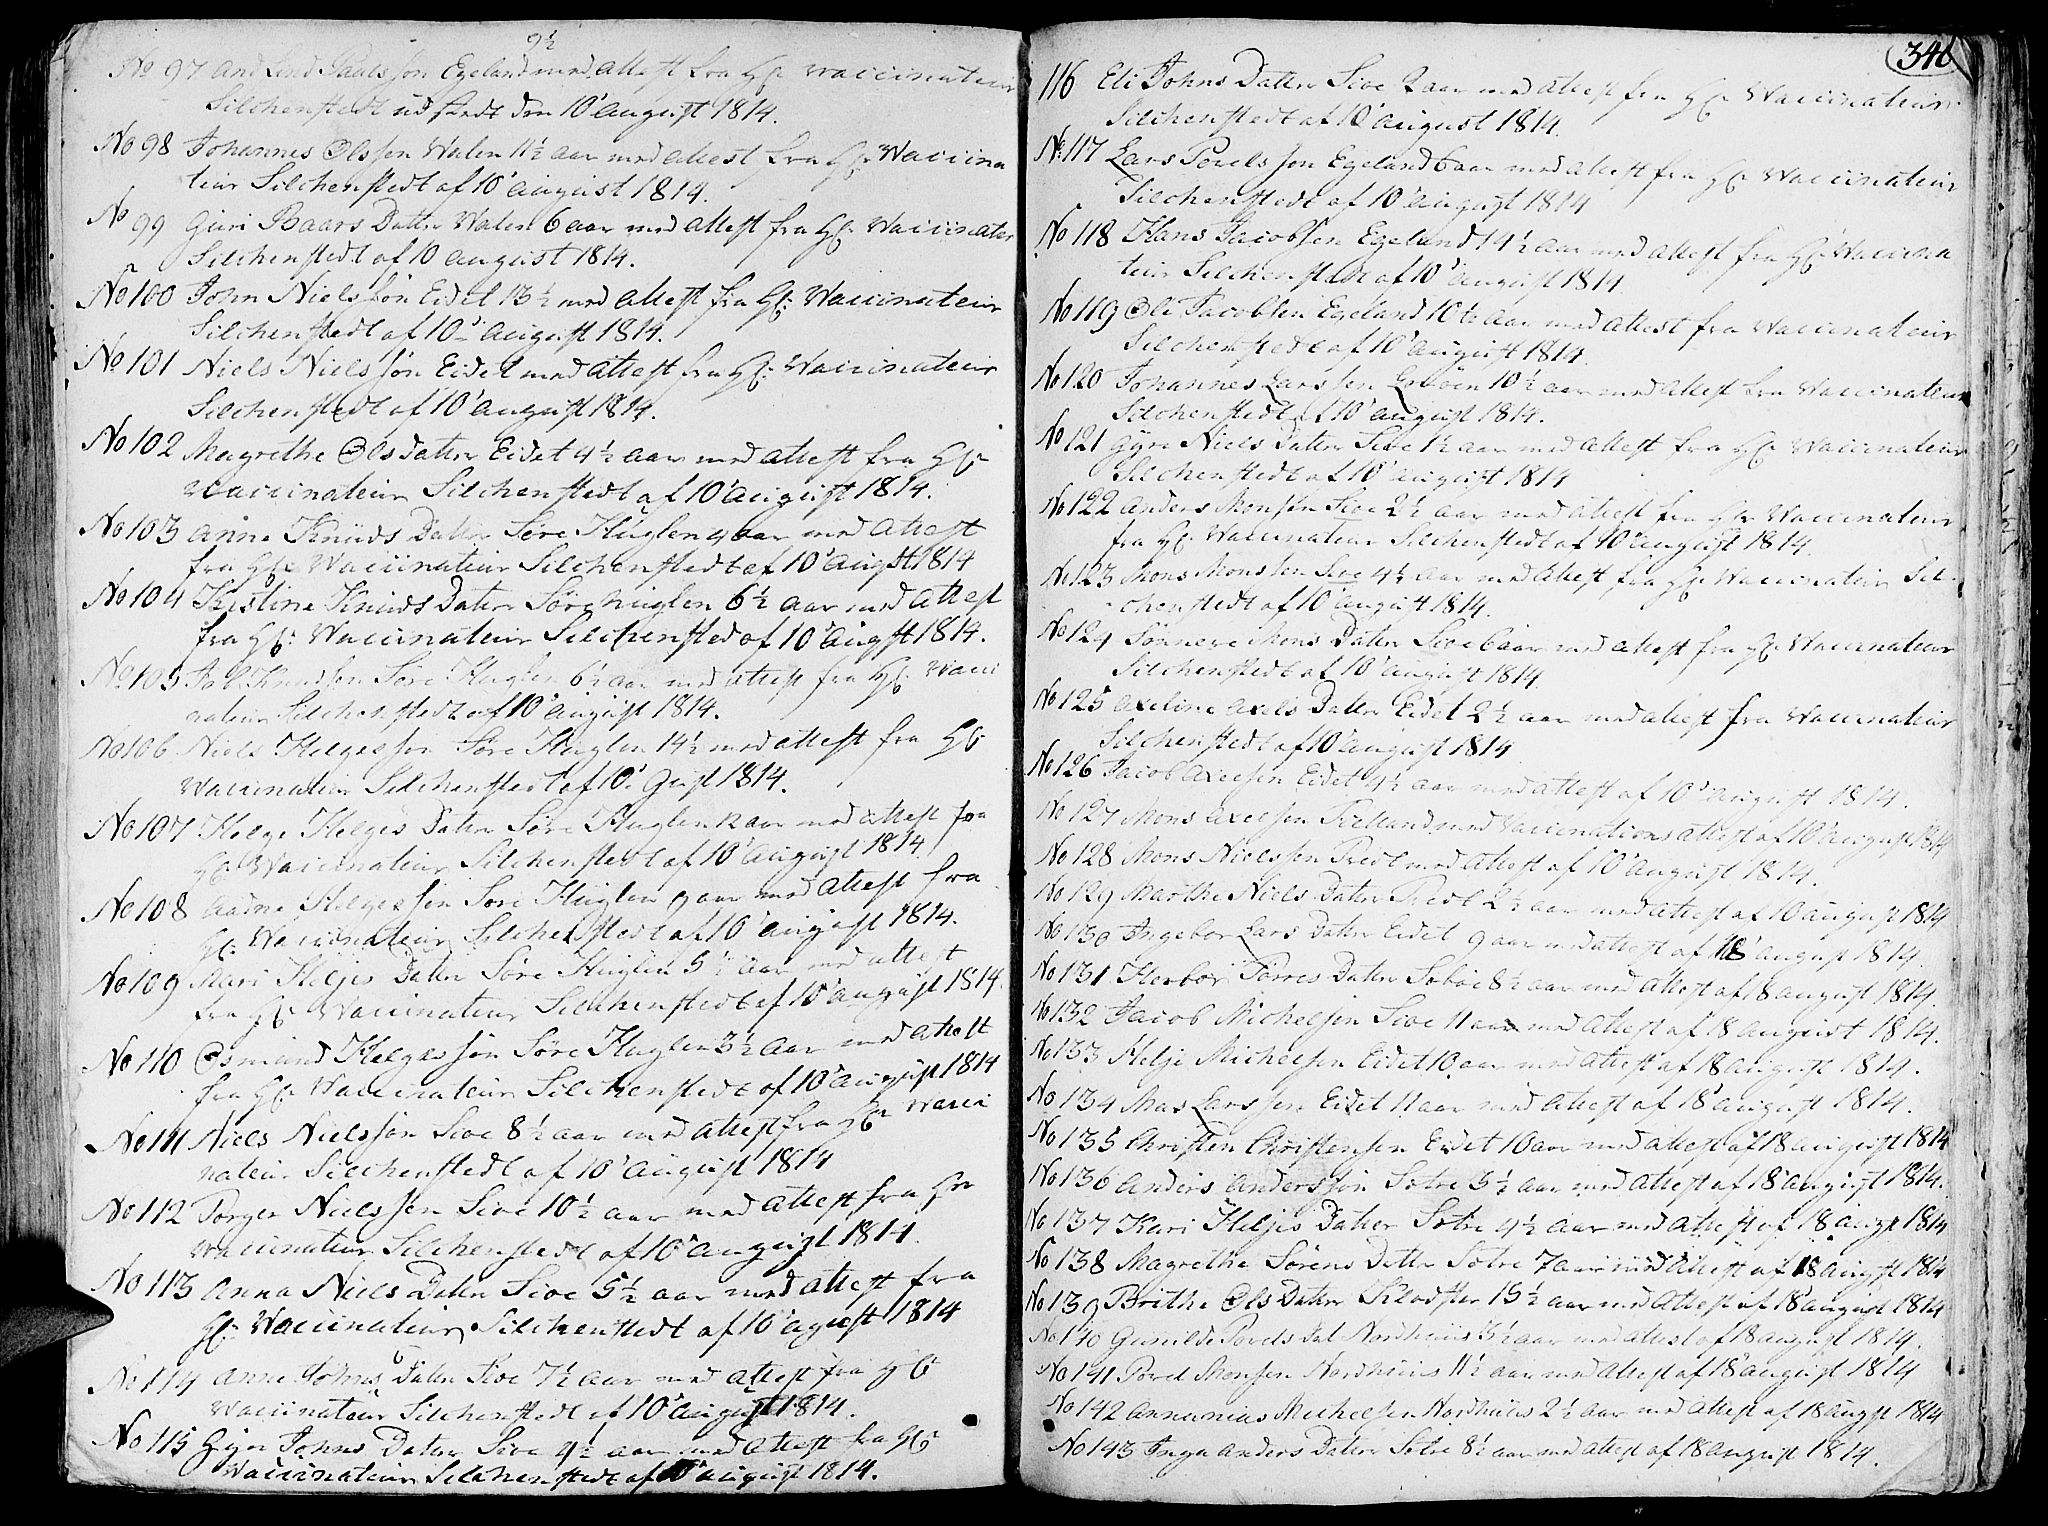 9½
No 97 And Lind Paulssøn Egeland med attest fra Hr: Vaccinateur
Silchenstedt udstædt den 10' august 1814.
No 98 Johannes Olssøn Walen 11½ aar med attest fra Hr Waccina
teur Silchenstedt af 10' august 1814.
No 99 Guri Baars Datter Walen 6 aar med attest fra Hr: Vaccinater
Silchenstedt af 10 august 1814.
No 100 John Nielssøn Eidet 13½ med attest fra Hr: Waccinateur
Silchenstedt af 10' august 1814.
No 101 Niels Nielssøn Eidet med attest fra Hr: Waccinateur
Silchenstedt af 10' august 1814.
No 102 Magrethe Olsdatter Eidet 4½ aar med attest fra Hr
Waccinateur Silchenstedt af 10' august 1814.
No 103 Anne Knuds Datter Søre Huglen 4 aar med attest
fra Hr: Waccinateur Silchenstedt af 10' augst 1814
No 104 Kristine Knuds Datter Søre huglen 6½ aar med attest
fra Hr: Waccinateur Silchensted af 10' augst 1814.
No 105 Knudsøn Søre Huglen 6½ aar med attest fra Hr: Vacci
nateur Silchenstedt af 10' august 1814.
No 106 Niels Helgessøn Søre Huglen 14½ med attest fra Hr
Waccinateur Silchenstedt af 10' gust 1814.
No 107 Helge Helges Datter Søre Huglen 12 aar med attest fra
Hr: Waccinateur Silchenstedt af 10' august 1814.
No 108 Aadne Helgessøn Søre Huglen 9 aar med attest fra
Hr: Waccinateur Silchenstedt af 10' august 1814.
No 109 Mari Heljes Datter Søre Huglen 5½ aar med attest
fra Hr: Waccinateur Silchenstedt af 10' august 1814.
No 110 Osmund Helgessøn Søre Huglen 3½ aar med attest
fra Hr: Waccinateur Silchenstedt af 10' august 1814
No 111 Niels Nielssøn Sioe 8½ aar med attest fra Hr Wacci
nateur Silchenstedt af 10' august 1814
No 112 Torger Nielssøn Sioe 10½ aar med attest fra Hr
Waccinateur Silchenstedt af 10' august 1814.
No 113 Anna Niels Datter Sioe 5½ aar med attest fra
Hr: Waccinateur Silchenstedt af 10' agust 1814
No 114 Anne Johns Datter Sioe 7½ aar med attest fra Hr
Waccinateur Silchenstedt af 10' august 1814.
No 115 Gyri Johns Datter Sioe 9½ aar med attest fra Hr
Waccinateur Silchenstedt af 10' august 1814.
346
116 Eli Johns Datter Sioe 2 aar med attest fra Hr: Waccinateur
Silchenstedt af 10 august 1814.
No 117 Lars Povelssøn Egeland 6 aar med attest fra Hr: Waccinateur
Silchenstedt af 10' august 1814
No 118 Hans Jacobsen Egeland 14½ aar med attest fra Hr: Waccina
teur Silchenstedt af 10' august 1814
No 119 Ole Jacobsen Egeland 10½ aar med attest fra Waccinateur
Silchenstedt af 10' august 1814.
No 120 Johannes Larssen 10½ aar med attest fra Waccinateur
Silchenstedt af 10' august 1814.
No 121 Gyre Niels Datter Sioe 1½ aar med attest fra Hr: Waccinateur
Silchenstedt af 10' august 1814
No 122 Anders Monsen Sioe 2½ aar med attest fra Hr: Waccinateur
fra Hr: Waccinateur Silchenstedt af 10' august 1814.
No 123 Mons Monssen Sioe 4½ aar med attest fra Hr: Waccinateur Sil-
chenstedt af 10' august 1814.
No 124 Sønneve Mons Datter Sioe 6 aar med attest fra Hr: Waccinateur
Silchenstedt af 10' august 1814.
No 125 Axeline Axels Datter Eidet 2½ aar med attest fra Waccinateur
Silchenstedt af 10' august 1814
No 126 Jacob Axelsen Eidet 4½ aar med attest af 10' august 1814.
No 127 Mons Axelsen med Vaccinations attest af 10' august 1814
No 128 Mons Nielssen Tredt med attest af 10' august 1814.
No 129 Marthe Niels Datter Tredt 2½ aar med attest af 10 august 1814
No 130 Ingebor Lars Datter Eidet 9 aar med attest af 18' august 1814.
No 131 Herbor Torres Datter Sobøe 8½ aar med attest af 18 august 1814.
No 132 Jacob Michelsen Sioe 11 aar med attest af 18 august 1814.
No 133 Helje Michelsen Eidet 10 aar med attest af 18 august 1814.
No 134 Mas Larssen Eidet 11 aar med attest af 18' august 1814.
No 135 Christen Christensen Eidet 10 aar med attest af 18 august 1814
No 136 Anders Anderssøn Sotre 5½ aar med attest af 18' august 1814.
No 137 Kari Heljes Datter Sotre 4½ aar med attest af 18' augst 1814
No 138 Magrethe Sørens Datter Sotre 7 aar med attest af 18 augst 1814
No 139 Brithe Ols Datter Klodster 15½ aar med attest af 18' august 1814
No 140 Gunilde Povels Dat Nordhuus 5½ aar med attest af 18 august 1814.
No 141 Povel Monsen Nordhuus 11½ aar med attest af 18' august 1814
No 142 Annanias Michelsen Nordhuus 2½ aar med attest af 18 augst 1814
No 143 Inga Anders Datter Sotre 8½ aar med attest af 18 august 1814.